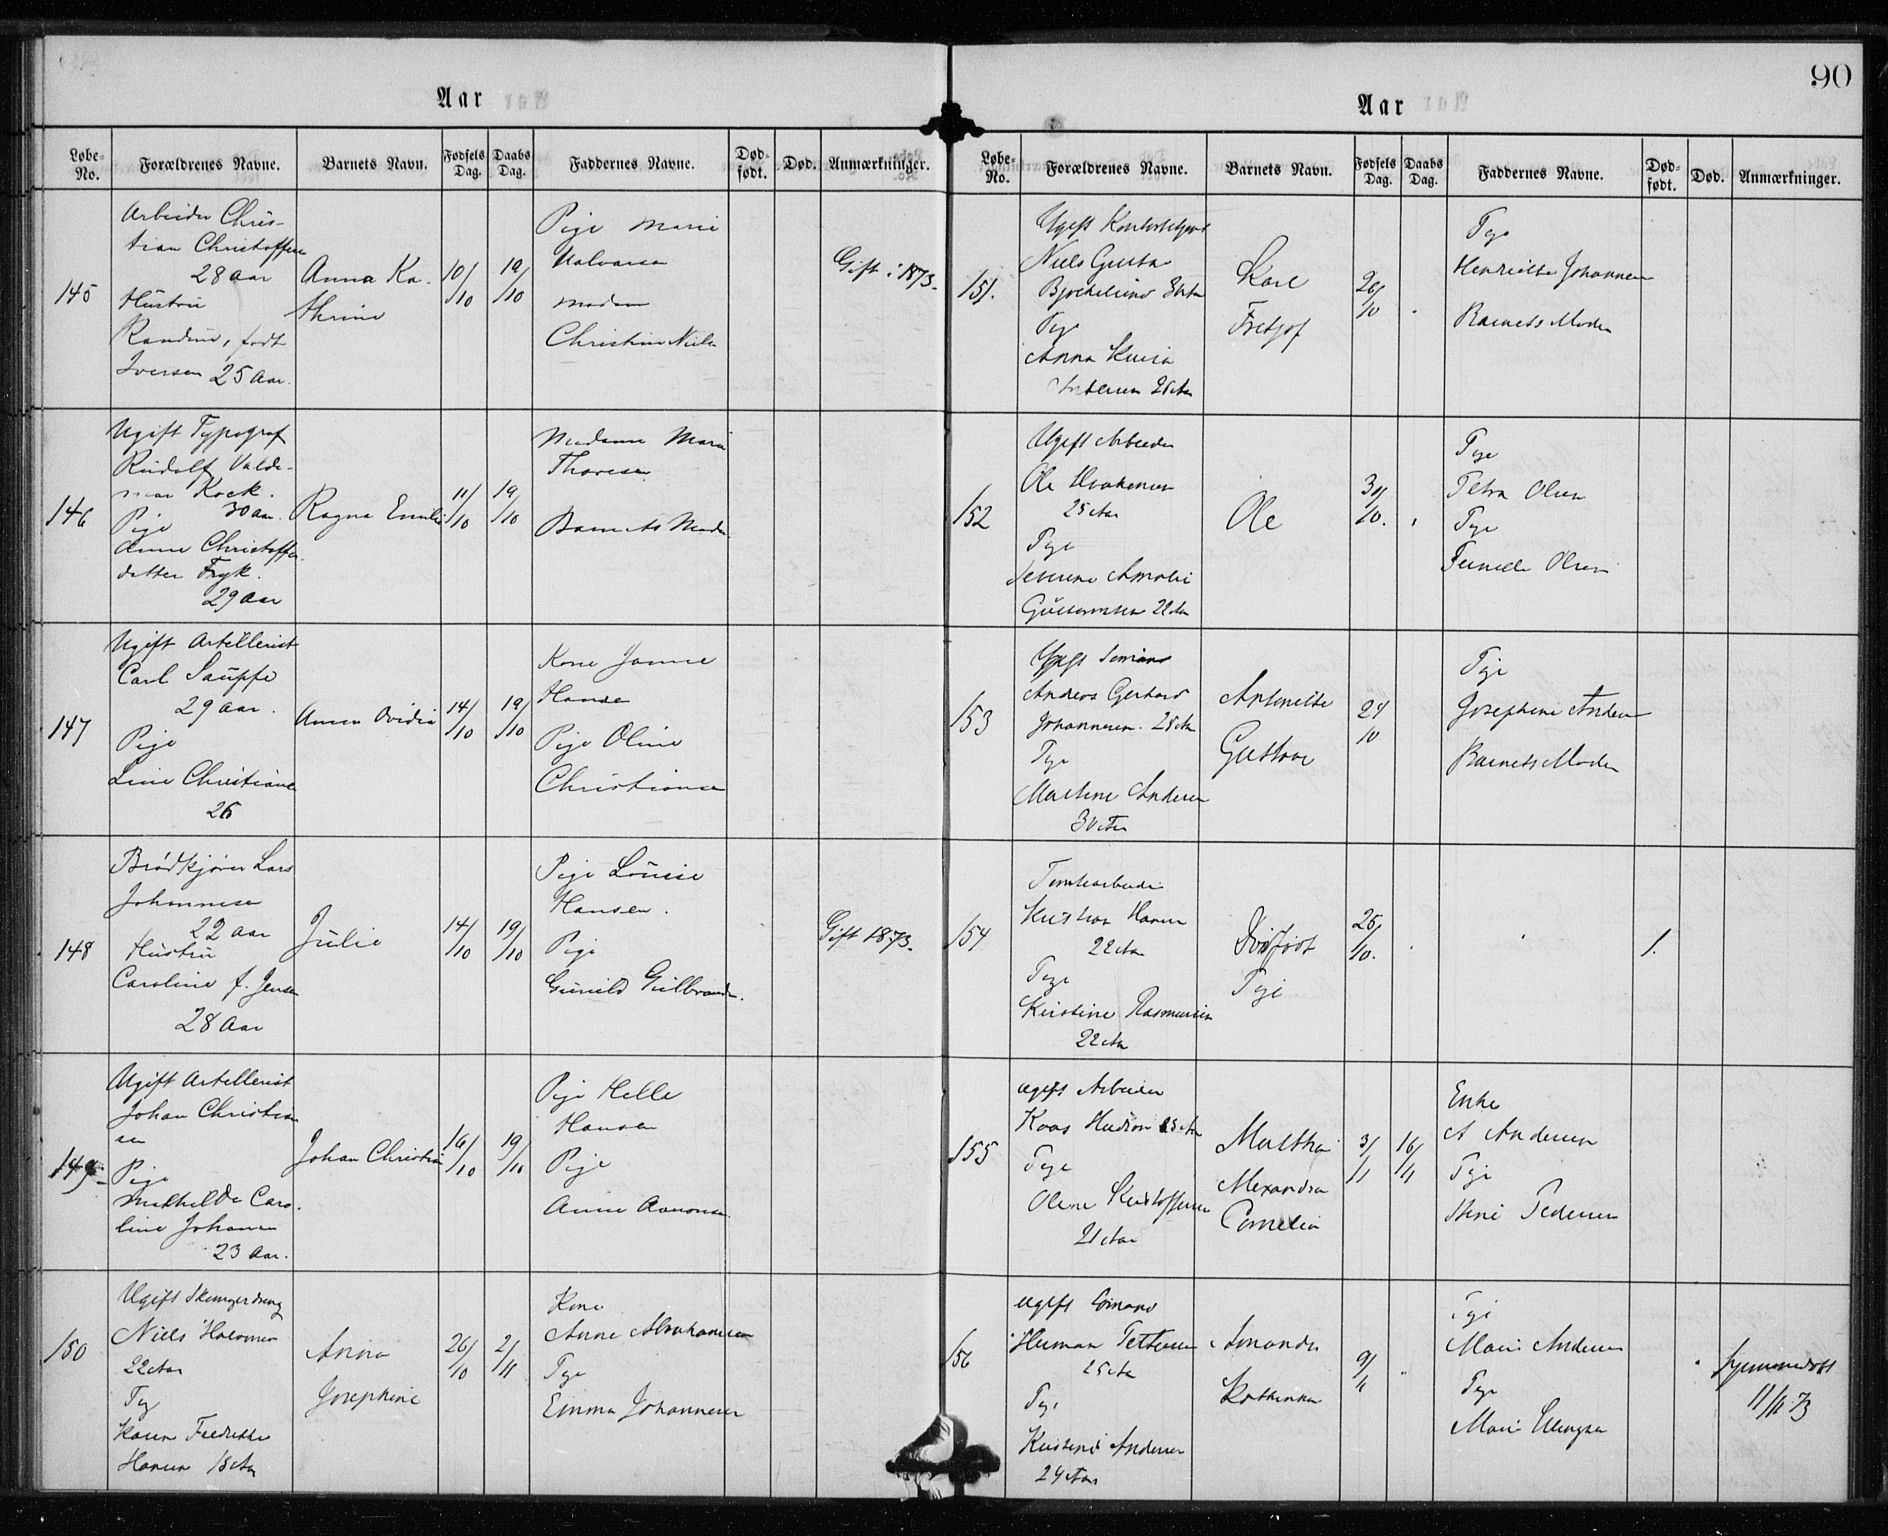 90
Aar
Løbe-No. Forældrenes Navne. Barnets Navn. Fødsels Dag. Daabs Dag. Faddernes Navne. Død-født. Død. Anmærkninger.
145
Arbeider Chris-
tian Christoffersen
28 Aar
Hustru
Randine, født
Iversen 25 Aar.
Anna Ka-
thrine
10/10
19/10
Pige Marie
Halvorsen
Madam
Christine Nielsen
Gift i 1873.
146
Ugift Typograf
Rudolf Valde-
mar Kock.
30 Aar.
Pige
Anne Christoffers-
datter Fryk.
29 Aar
Ragna Emilie
11/10
19/10
Madame Marie
Thoresen
Barnets Moder
147
Ugift Artillerist
Carl Sauppe
29 Aar.
Pige
Line Christiansen
26
Anna Ovidia
14/10
19/10
Kone Janne
Hansen
Pige Oline
Christiansen
148
Brødkjører Lars
Johannesen
22 Aar
Hustru
Caroline f. Jensen
28 Aar
Julie
14/10
19/10
Pige Louise
Hansen.
Pige
Gunild Gulbrandsen.
Gift 1873.
149
Ugift Artillerist
Johan Christian
sen
Pige
Mathilde Caro-
line Johansen
23 Aar.
Johan Christian
16/10
19/10
Pige Helle
Hansen
Pige
Anne Aanonsen
150
Ugift
Niels Halvorsen
22 Aar
Pige
Karen Fredrikke
Hansen 18 Aar
Anna
Josephine
26/10
2/11
Kone
Anne Abrahamsen
Pige
Emma Johannesen
Aar
Løbe-No. Forældrenes Navne. Barnets Navn. Fødsels Dag. Daabs Dag. Faddernes Navne. Død-født. Død. Anmærkninger.
151.
Ugift
Niels Gustav
Pige
Anna
Andersen 26 Aar
Karl
Fretjof
20/10
Pige
Henriette Johannesen
Barnets Moder
152
Ugift Arbeider
Ole Haakensen
25 Aar
Pige
Severine Amalie
22 Aar
Ole
Pige
Petra Olsen
Pige
Olsen
153
Ugift Sømand
Anders Gerhard
Johannesen. 28 Aar
Pige
Martine Andersen
30 Aar
Antonette
Gustava
24/10
Pige
Josephine Andersen
Barnets Moder
154
Tomtearbeider
Kristian Hansen
22 Aar
Pige
Kirstine Rasmussen
22 Aar
Dødfødt
Pige
25/10.
1.
155
Ugift Arbeider
Pige
Olene Kristoffersen
21 Aar
Martha
Alexandra
Cornelia
3/11
16/11
Enke
A Andersen
Pige
Stine Pedersen
156
Ugift Sømand
Herman Pettersen
25 Aar
Pige
Kristine Andersen
24 Aar
Amanda
Kathinka
9/11
Pige
Marie Andersen
Pige
Marie
hjemmedøbt
11/11 73